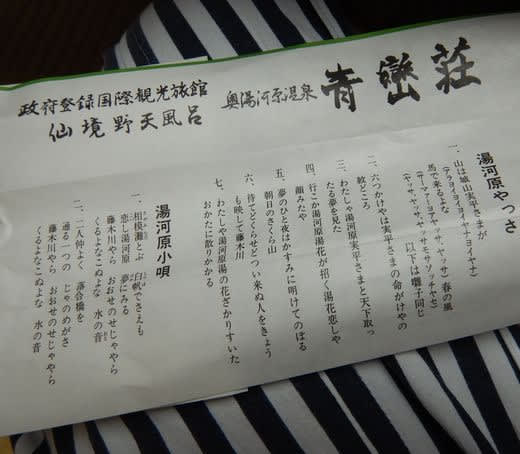 政府登録国際観光旅館
仙境野天風呂
奥湯河原温泉
青巒荘
湯河原やっさ
一、山は城山実平さまが
馬で来るよな
春の風
以下は囃子同じ
二、六つかけやは実平さまの命がけやの
紋どころ
三、わたしゃ湯河原実平さまと天下取っ
たる夢を見た
四、行こか湯河原湯花が招く湯花恋しや
顔みたや
五、夢のひと夜はかすみに明けてのぼる
朝日のさくら山
六、待てどくらせどつい来ぬ人をきょう
も映して藤木川
七、わたしゃ湯河原湯の花ざかりすいた
おかたに散りかかる
湯河原小唄
一、相模灘とぶ 白帆でさえも
恋し湯河原 夢にみる
藤木川やら おおせのせじゃやら
くるよなこぬよな 水の音
二、二人仲よく 落合橋を
通る一つの じゃのめがさ
藤木川やら おおせのせじゃやら
くるよなこぬよな 水の音